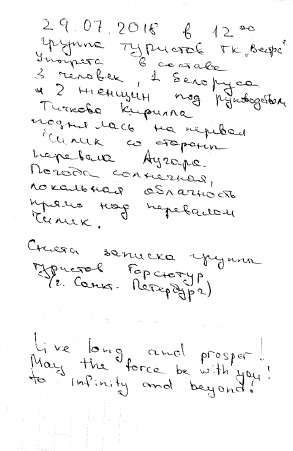 29.07.2018 в 12 00
группа туристов т.к. "Вестра"
в составе
3 человек, 1 Белоруса
и 2 женщин под руководством
Титкова Кирилла
поднялась на перевал
Чилик со стороны
перевала Аугара.
Погода солнечная,
локальная облачность
прямо над перевалом
Чилик.
Снята записка группы
туристов Горсютур
(г. Санкт-Петербург)
Live long and prosper!
May the force be with you!
to infinity and beyond!